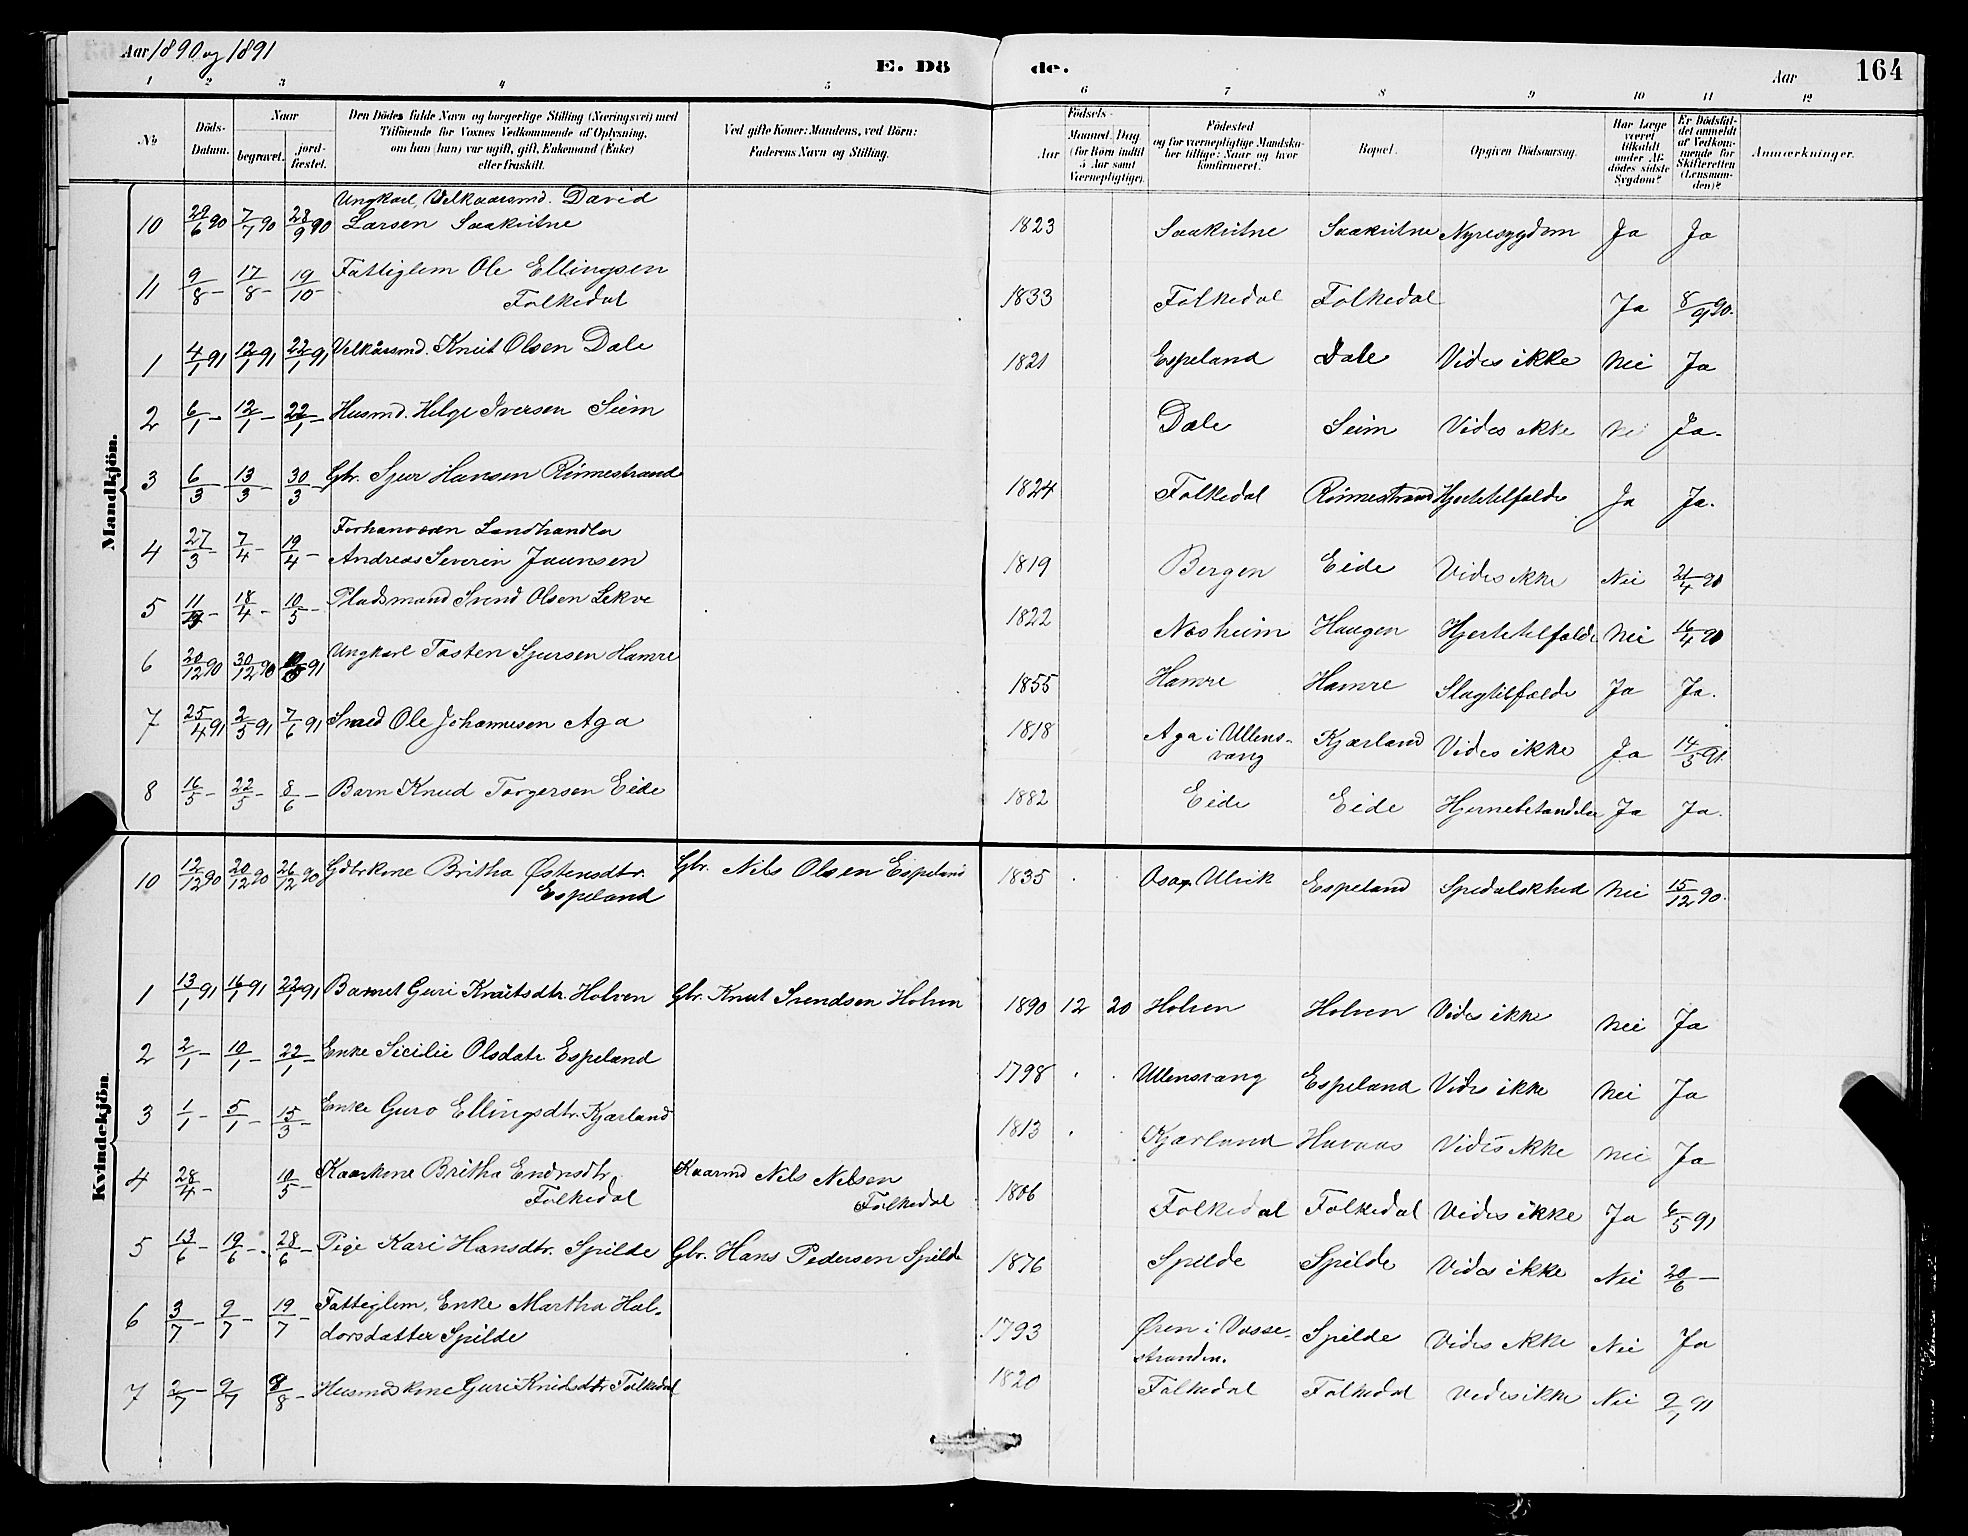 Aar 1890 og 1891
E. Dö de.
Aar 164
1 2 3 4 5 6 7 8 9 10 11 12
No Döds-Datum. Naar begravet. jord-fæstet. Den Dödes fulde Navn og borgerlige Stilling (Næringsvei) med Tilföiende for Voxnes Vedkommende af Oplysning, om han (hun) var ugift, gift, Enkemand (Enke) eller fraskilt. Ved gifte Koner: Mandens, ved Börn: Faderens Navn og Stilling. Födsels- Aar Maaned. Dag. (for Börn indtil 5 Aar samt Værnepligtige). Födested og for værnepligtige Mandskaber tillige: Naar og hvor konfirmeret. Bopæl. Opgiven Dödsaarsag. Har Læge været tilkaldt under Afdödes sidste Sygdom? Er Dödsfaldet anmeldt af Vedkommende for Skifteretten (Lensmanden)? Anmærkninger.
Mandkjön.
10 29/6 90 7/7 90 28/9 90 Ungkarl, Velkaarsmd. David
Larsen Saakvitne 1823 Saakvitne Saakvitne Nyresygdom Ja Ja
11 9/8 – 17/8 – 19/10 – Fattiglem Ole Ellingsen
Folkedal 1833 Folkedal Folkedal Ja 8/9 90.
1 4/1 91 12/1 91 22/1 91 Velkårsmd. Knut Olsen Dale 1821 Espeland Dale Vides ikke Nei Ja
2 6/1 – 12/1 – 22/1 – Husmd. Helge Iversen Seim Dale Seim Vides ikke Nei Ja.
3 6/3 – 13/3 – 30/3 – Gbr. Sjur Hansen Rönnestrand 1824 Folkedal Rönnestrand Hjertetilfælde Ja Ja.
4 27/3 – 7/4 – 19/4 – Forhenværen Landhandler
Andreas Severin Jaunsen 1819 Bergen Eide Vides ikke Nei 21/4 91
5 11/4 – 18/4 – 10/5 – Pladsmand Svend Olsen Lekve 1822 Næsheim Haugen Hjertetilfælde Nei 16/4 91
6 20/12 90 30/12 90 10/5 91 Ungkarl Tosten Sjursen Hamre 1855 Hamre Hamre Slagtilfælde Ja Ja.
7 25/4 91 2/5 91 7/6 91 Smed Ole Johannesen Aga 1818 Aga i Ullens-
vang Kjærland Vides ikke Ja 14/5 91.
8 16/5 – 22/5 – 8/6 – Barn Knud Torgersen Eide 1882 Eide Eide Hjernebetændelse Ja Ja.
Kvindekjön.
10 12/12 90 20/12 90 26/12 90 Gdbrkone Britha Østensdtr.
Espeland Gbr. Nils Olsen Espeland 1835 Ulvik Espeland Spedalskhed Nei 15/12 90.
1 13/1 91 16/1 91 22/1 91 Barnet Guri Knutsdtr. Holven Gbr. Knut Svendsen Holven 1890 12 20 Holven Holven Vides ikke Nei Ja
2 2/1 – 10/1 – 22/1 – Enke Sicilie Olsdatr Espeland 1798 Ullensvang Espeland Vides ikke Nei Ja
3 1/1 – 5/1 – 15/3 – Enke Guro Ellingsdtr. Kjærland 1813 Kjærland Havaas Vides ikke Nei Ja
4 28/4 – 10/5 – Kaarkone Britha Endresdtr.
Folkedal Kaarmd Nils Nilsen
Folkedal 1806 Folkedal Folkedal Vides ikke Ja 6/5 91
5 13/6 – 19/6 – 28/6 – Pige Kari Hansdtr. Spilde Gbr. Hans Pedersen Spilde 1876 Spilde Spilde Vides ikke Nei 20/6 –
6 3/7 – 9/7 – 19/7 – Fattiglem, Enke Martha Hal-
dorsdatter Spilde 1793 Øren i Vosse-
stranden. Spilde Vides ikke Nei Ja
7 2/7 – 9/7 9/8 – Husmdskone Guri Knudsdtr Folkedal 1820 Folkedal Folkedal Vides ikke Nei 9/7 91